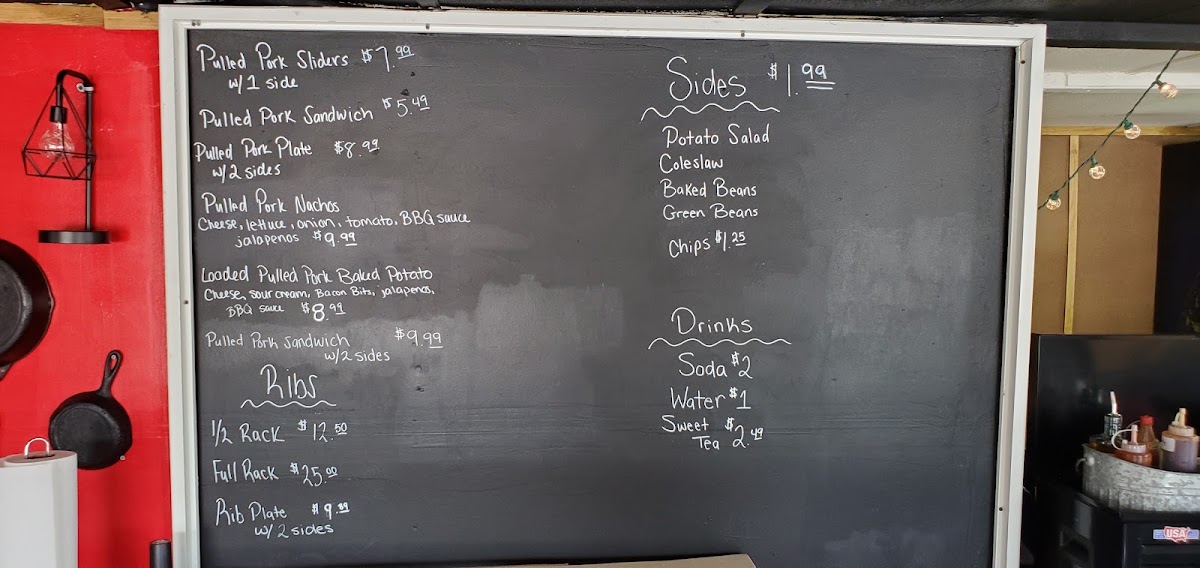 Pulled Pork Sliders $7.99
w/1 side
Pulled Pork Sandwich $5.49
Pulled Pork Plate $8.99
w/2 sides
Pulled Pork Nachos
Cheese, lettuce, onion, tomato, BBQ sauce
jalapenos $9.99
Loaded Pulled Pork Baked Potato
Cheese, sour cream, Bacon Bits, jalapenos,
BBQ sauce $8.99
Pulled Pork Sandwich $9.99
w/2 sides
Ribs
1/2 Rack $12.50
Full Rack $25.00
Rib Plate $9.99
w/2 sides
Sides $1.99
Potato Salad
Coleslaw
Baked Beans
Green Beans
Chips $1.25
Drinks
Soda $2
Water $1
Sweet $2.49
Tea
USA